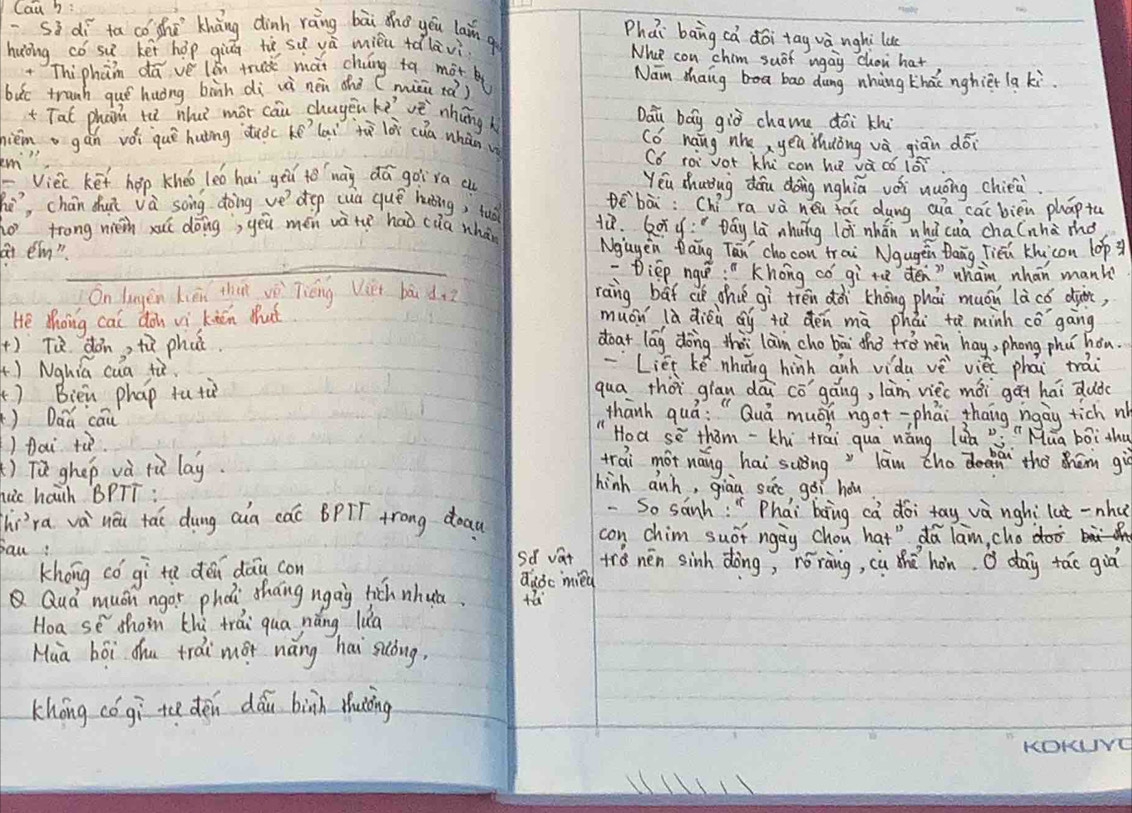 Câu b:
- Sở dĩ ta có thể khẳng định rằng bài thơ yêu làm
hướng có sự kết hợp giữa tự sự và miêu tả là vì.
+ Thi phẩm đã vẽ lên trước mắt chúng ta một
bức tranh quê hương bình dị và nên thơ (miêu tả)
+ Tác phẩm tự như một câu chuyện kể về những
niệm gắn với quê hương được kể lại từ lời của nhân
em".
- Việc kết hợp khéo léo hai yếu tố này đã gợi ra
chân thực và sống động vẻ đẹp của quê hương, tuổi
trong niềm xúc động, yêu mến và tự hào của nhân
ật em".
Ôn luyện kiến thức về Tiếng Việt bài 1+2
Hệ thống các đơn vị kiến thức
+) Từ đơn, từ phức.
+) Nghĩa của từ.
+) Biện pháp tu từ
+) Dấu câu
) Đại từ.
+) Từ ghép và từ láy.
hành BPTT:
Chỉ ra và nêu tác dụng của các BPTT trong đoạn
sau:
Không có gì tự đến đâu con
Quả muốn ngọt phải tháng ngày tích nhựa.
Hoa sẽ thơm khi trải qua nắng lửa
Mùa bội thu trải một nắng hai sương,
Không có gì tự đến dẫu bình thường
Phải bằng cả đôi tay và nghị lực
Như con chim suốt ngày chọn hạt
Năm tháng bao dung nhưng khắc nghiệt lạ kì.
Dẫu bây giờ cha mẹ đôi khi
Có nặng nhẹ, yêu thương và giận dỗi
Có roi vọt khi con hư và có lỗi
Yêu thương đâu đồng nghĩa với nuông chiều.
Đề bài: Chỉ ra và nêu tác dụng của các biện pháp tu
từ. Gợi ý: " Đây là những lời nhắn nhủ của cha (nhà thơ
Nguyễn Đăng Tấn cho con trai Nguyễn Đăng Tiến khi con lớp 9
- Điệp ngữ: " Không có gì tự đến" nhằm nhấn mạnh
rằng bất cứ thứ gì trên đời không phải muốn là có được,
muốn là điều ấy tự đến mà phải tự mình cố gắng
đoạt lấy đồng thời làm cho bài thơ trở nên hay, phong phú hơn.
- Liệt kê những hình ảnh ví dụ về việc phải trải
qua thời gian dài cố gắng, làm việc mới gặt hái được
thành quả: " Quả muốn ngọt - phải tháng ngày tích nh
"Hoa sẽ thơm - khi trải qua nắng lửa"; "Mùa bội thu
trải một nắng hai sương" làm cho bài thơ thêm
hình ảnh, giàu sức gợi hơn
- So sánh: " Phải bằng cả đôi tay và nghị lực - như
con chim suốt ngày chọn hạt" đã làm cho
sự vật
được miêu
tả
trở nên sinh động, rõ ràng, cụ thể hơn. Ở đây tác giả
KOKUYO